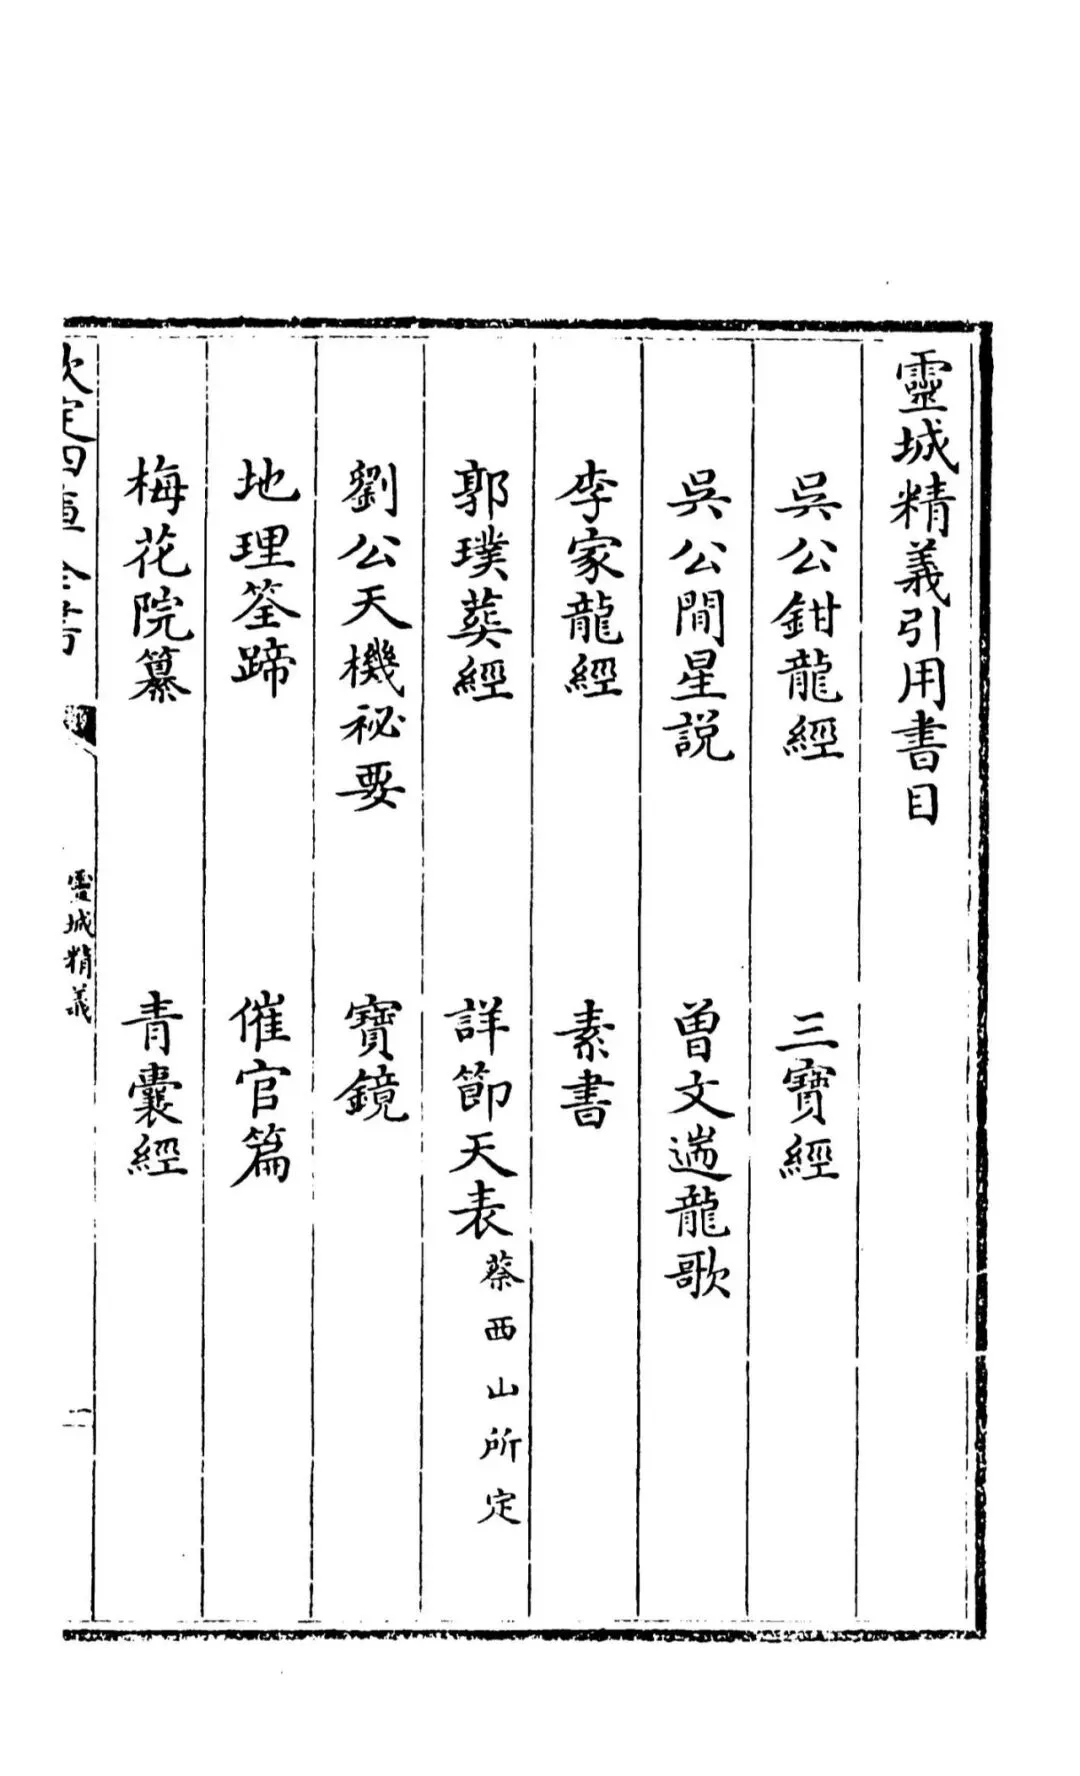 靈城精義引用書目
吳公鉗龍經 三寶經
吳公閒星説 曾文遄龍歌
李家龍經 素書
郭璞葬經 詳節天表 蔡西山所定
劉公天機祕要 寶鏡
地理筌蹄 催官篇
梅花院纂 青囊經
欽定四庫全書
靈城精義
一